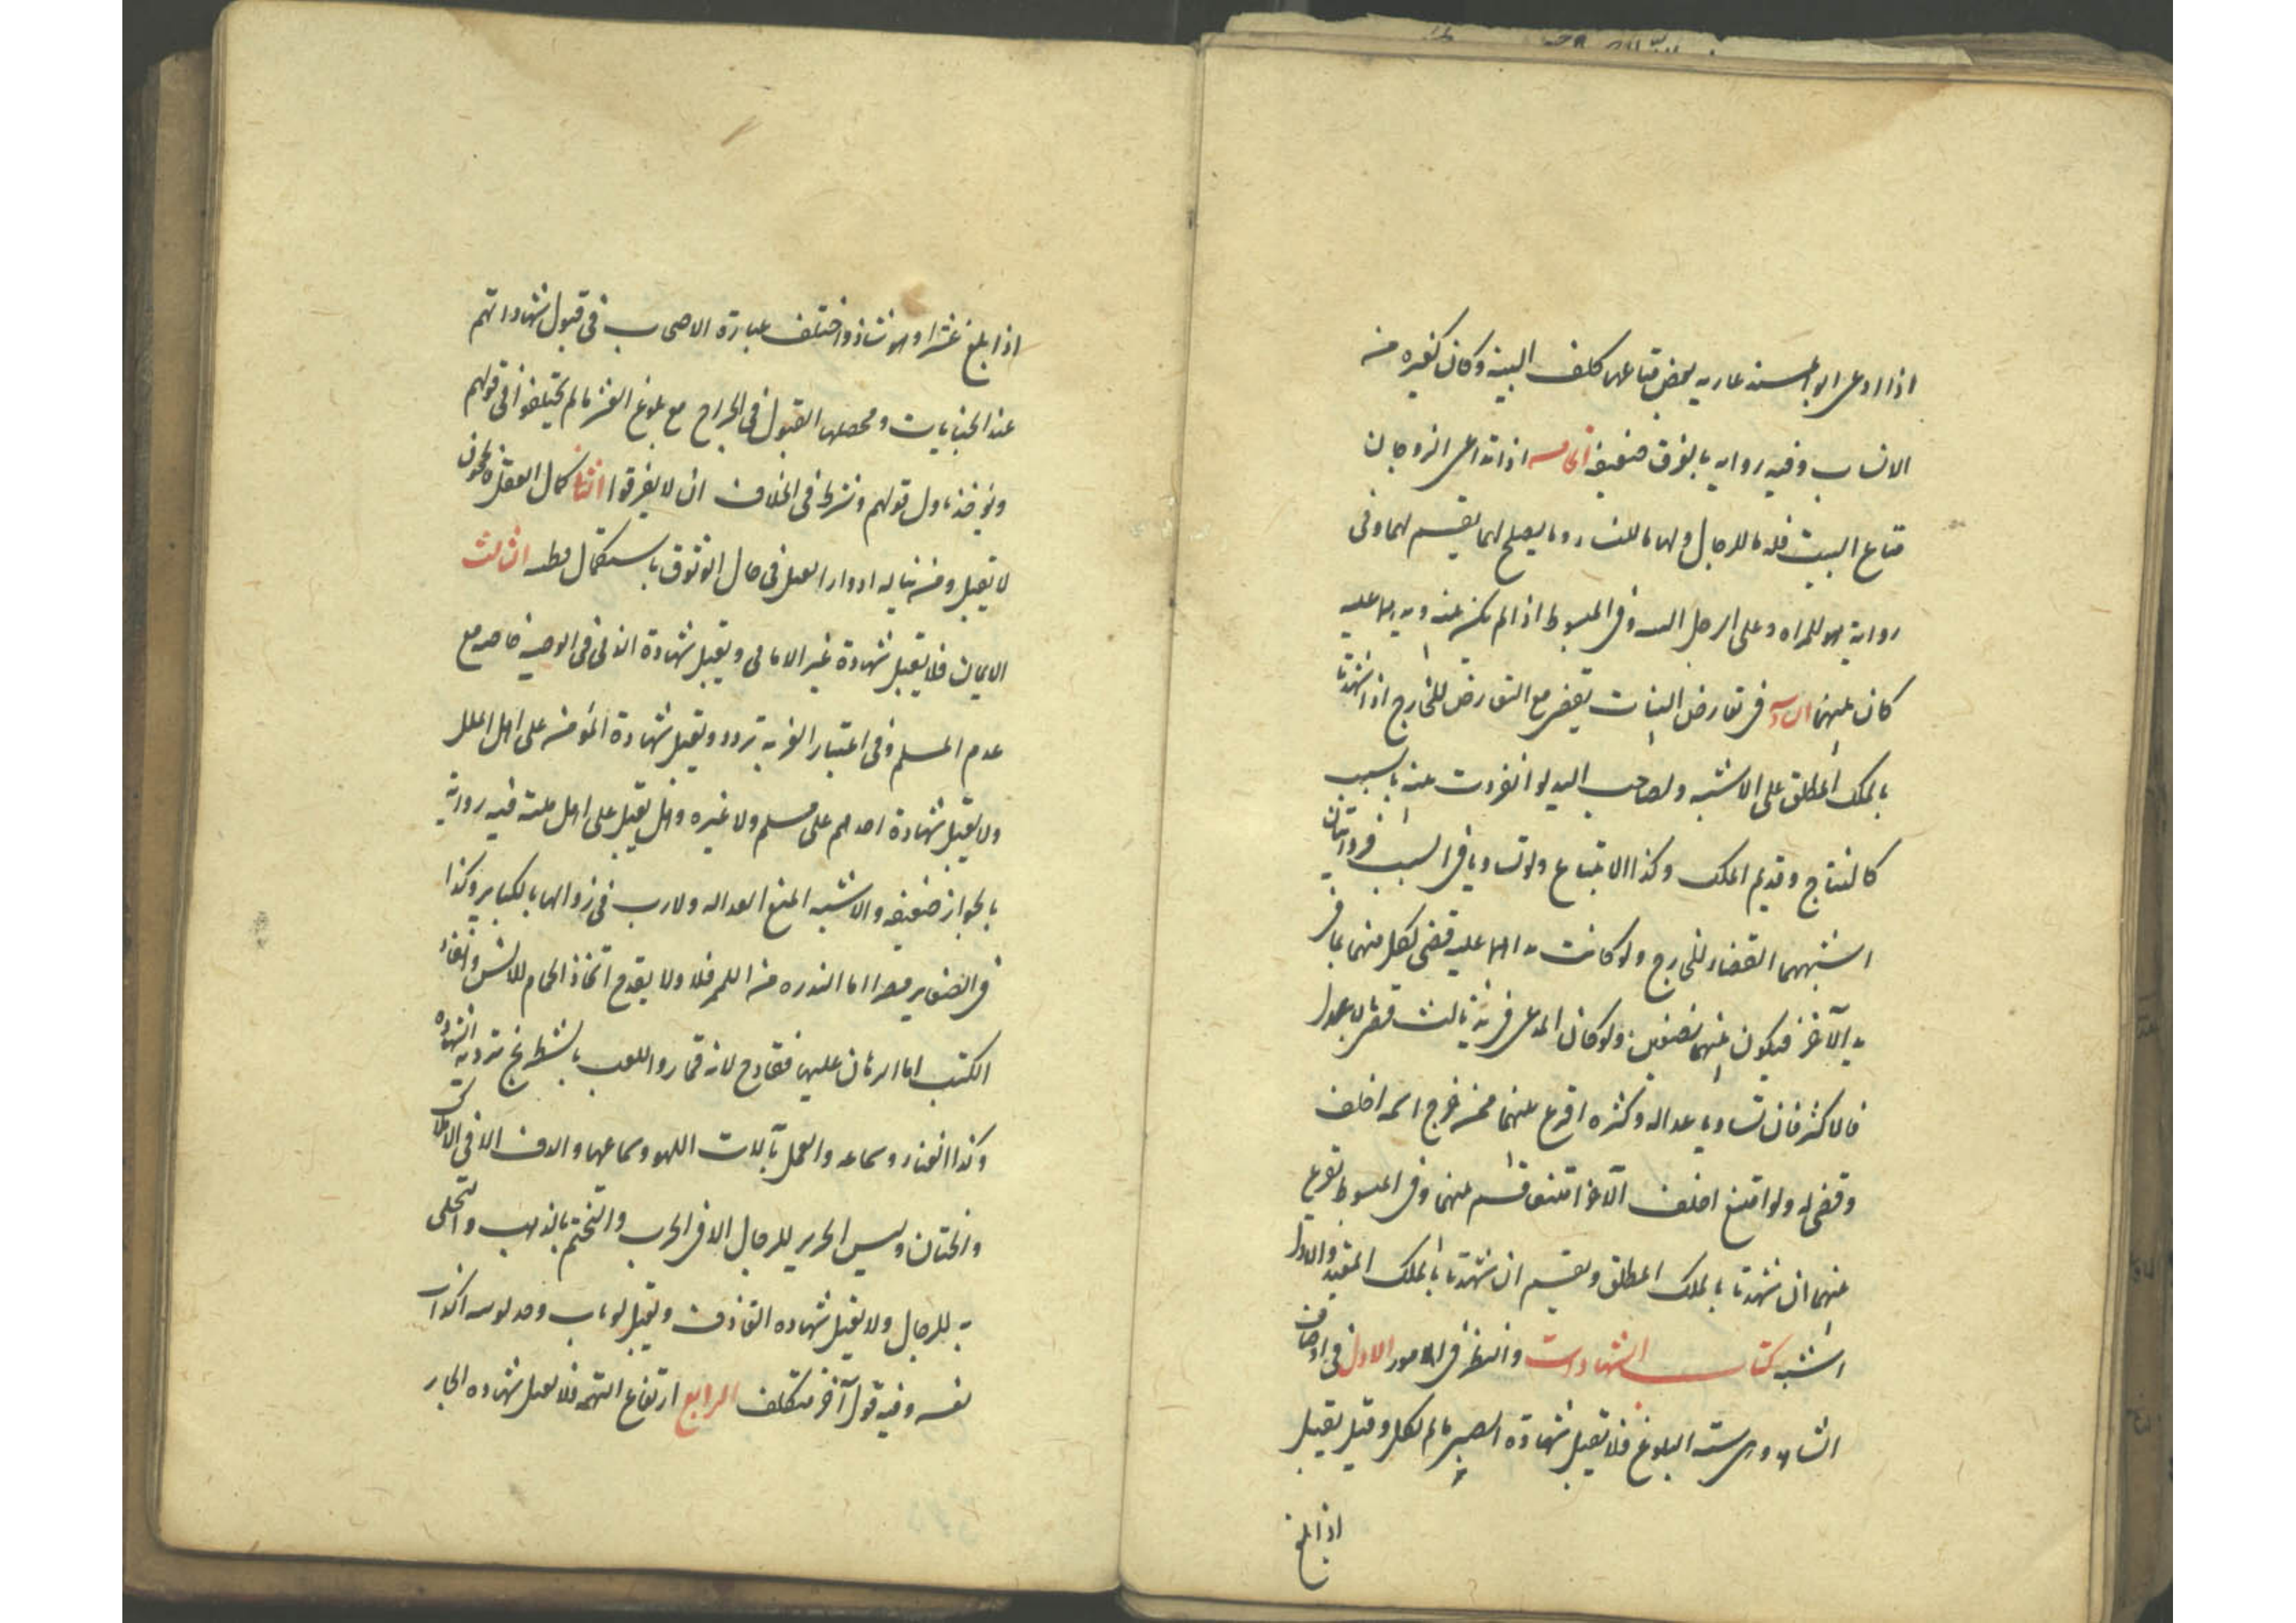 اذا ادعى ابو الميتة عارية بعض متاعها كلف البينة وكان كغيره من
الانساب وفيه رواية بالفرق ضعيفة الخامسة اذا تداعى الزوجان
متاع البيت فله ما للرجال ولها ما للنساء وما يصلح لهما يقسم لهما وفى
رواية هو للمراة وعلى الرجل البينة وفى المبسوط اذا لم يكن بينة ويدهما عليه
كان بينهما السادس فى تعارض البينات يقضى مع التعارض للخارج اذا شهدتا
بالملك المطلق على الاشبه ولصاحب اليد لو انفردت بينته بالسبب
كالنتاج وقديم الملك وكذا الابتياع ولو تساويا فى السبب فروايتان
اشبههما القضاء للخارج ولو كانت يداهما عليه قضى لكل منهما بما فى
يد الآخر فيكون بينهما نصفين ولو كان المدعى فى يد ثالث قضى بالاعدل
فالاكثر فان تساويا عدالة وكثرة اقرع بينهما فمن خرج اسمه احلف
وقضى له ولو امتنع احلف الآخر امتنعا قسم بينهما وفى المبسوط يقرع
بينهما ان شهدتا بالملك المطلق ويقسم ان شهدتا بالملك المقيد والاول
اشبه كتاب الشهادات والنظر فى امور الاول فى اوصاف
الشاهد وهى ستة البلوغ فلا تقبل شهادة الصبى ما لم يكلف وقيل تقبل
اذا بلغ
اذا بلغ عشرا وهو شاذ واختلف عبارة الاصحاب فى قبول شهاداتهم
عند الجنايات ومحصلها القبول فى الجراح مع بلوغ العشر ما لم يختلفوا فى قولهم
ويؤخذ باول قولهم وشرط فى الخلاف ان لا يفرقوا الثانى كمال العقل فالمجنون
لا تقبل ومن يناله ادوارا تقبل فى حال الوثوق باستكمال فطنه الثالث
الايمان فلا تقبل شهادة غير الامامى وتقبل شهادة الذمى فى الوصية خاصة مع
عدم المسلم وفى اعتبار الغربة تردد وتقبل شهادة المؤمن على اهل الملل
ولا تقبل شهادة احدهم على مسلم ولا غيره وهل تقبل على اهل ملته فيه رواية
بالجواز ضعيفة والاشبه المنع العدالة ولا ريب فى زوالها بالكباير وكذا
فى الصغاير مصرا اما الندرة من اللمم فلا ولا يقدح اتخاذ الحمام للانس وانفاذ
الكتب اما الرهان عليها فقادح لانه قمار واللعب بالشطرنج ترد به الشهادة
وكذا الغناء وسماعه والعمل بآلات اللهو وسماعها والدف الا فى الاملاك
والختان ولبس الحرير للرجال الا فى الحرب والتختم بالذهب والتحلى
به للرجال ولا تقبل شهادة القاذف وتقبل لو تاب وحد توبته اكذاب
نفسه وفيه قول آخر متكلف الرابع ارتفاع التهمة فلا تقبل شهادة الجار